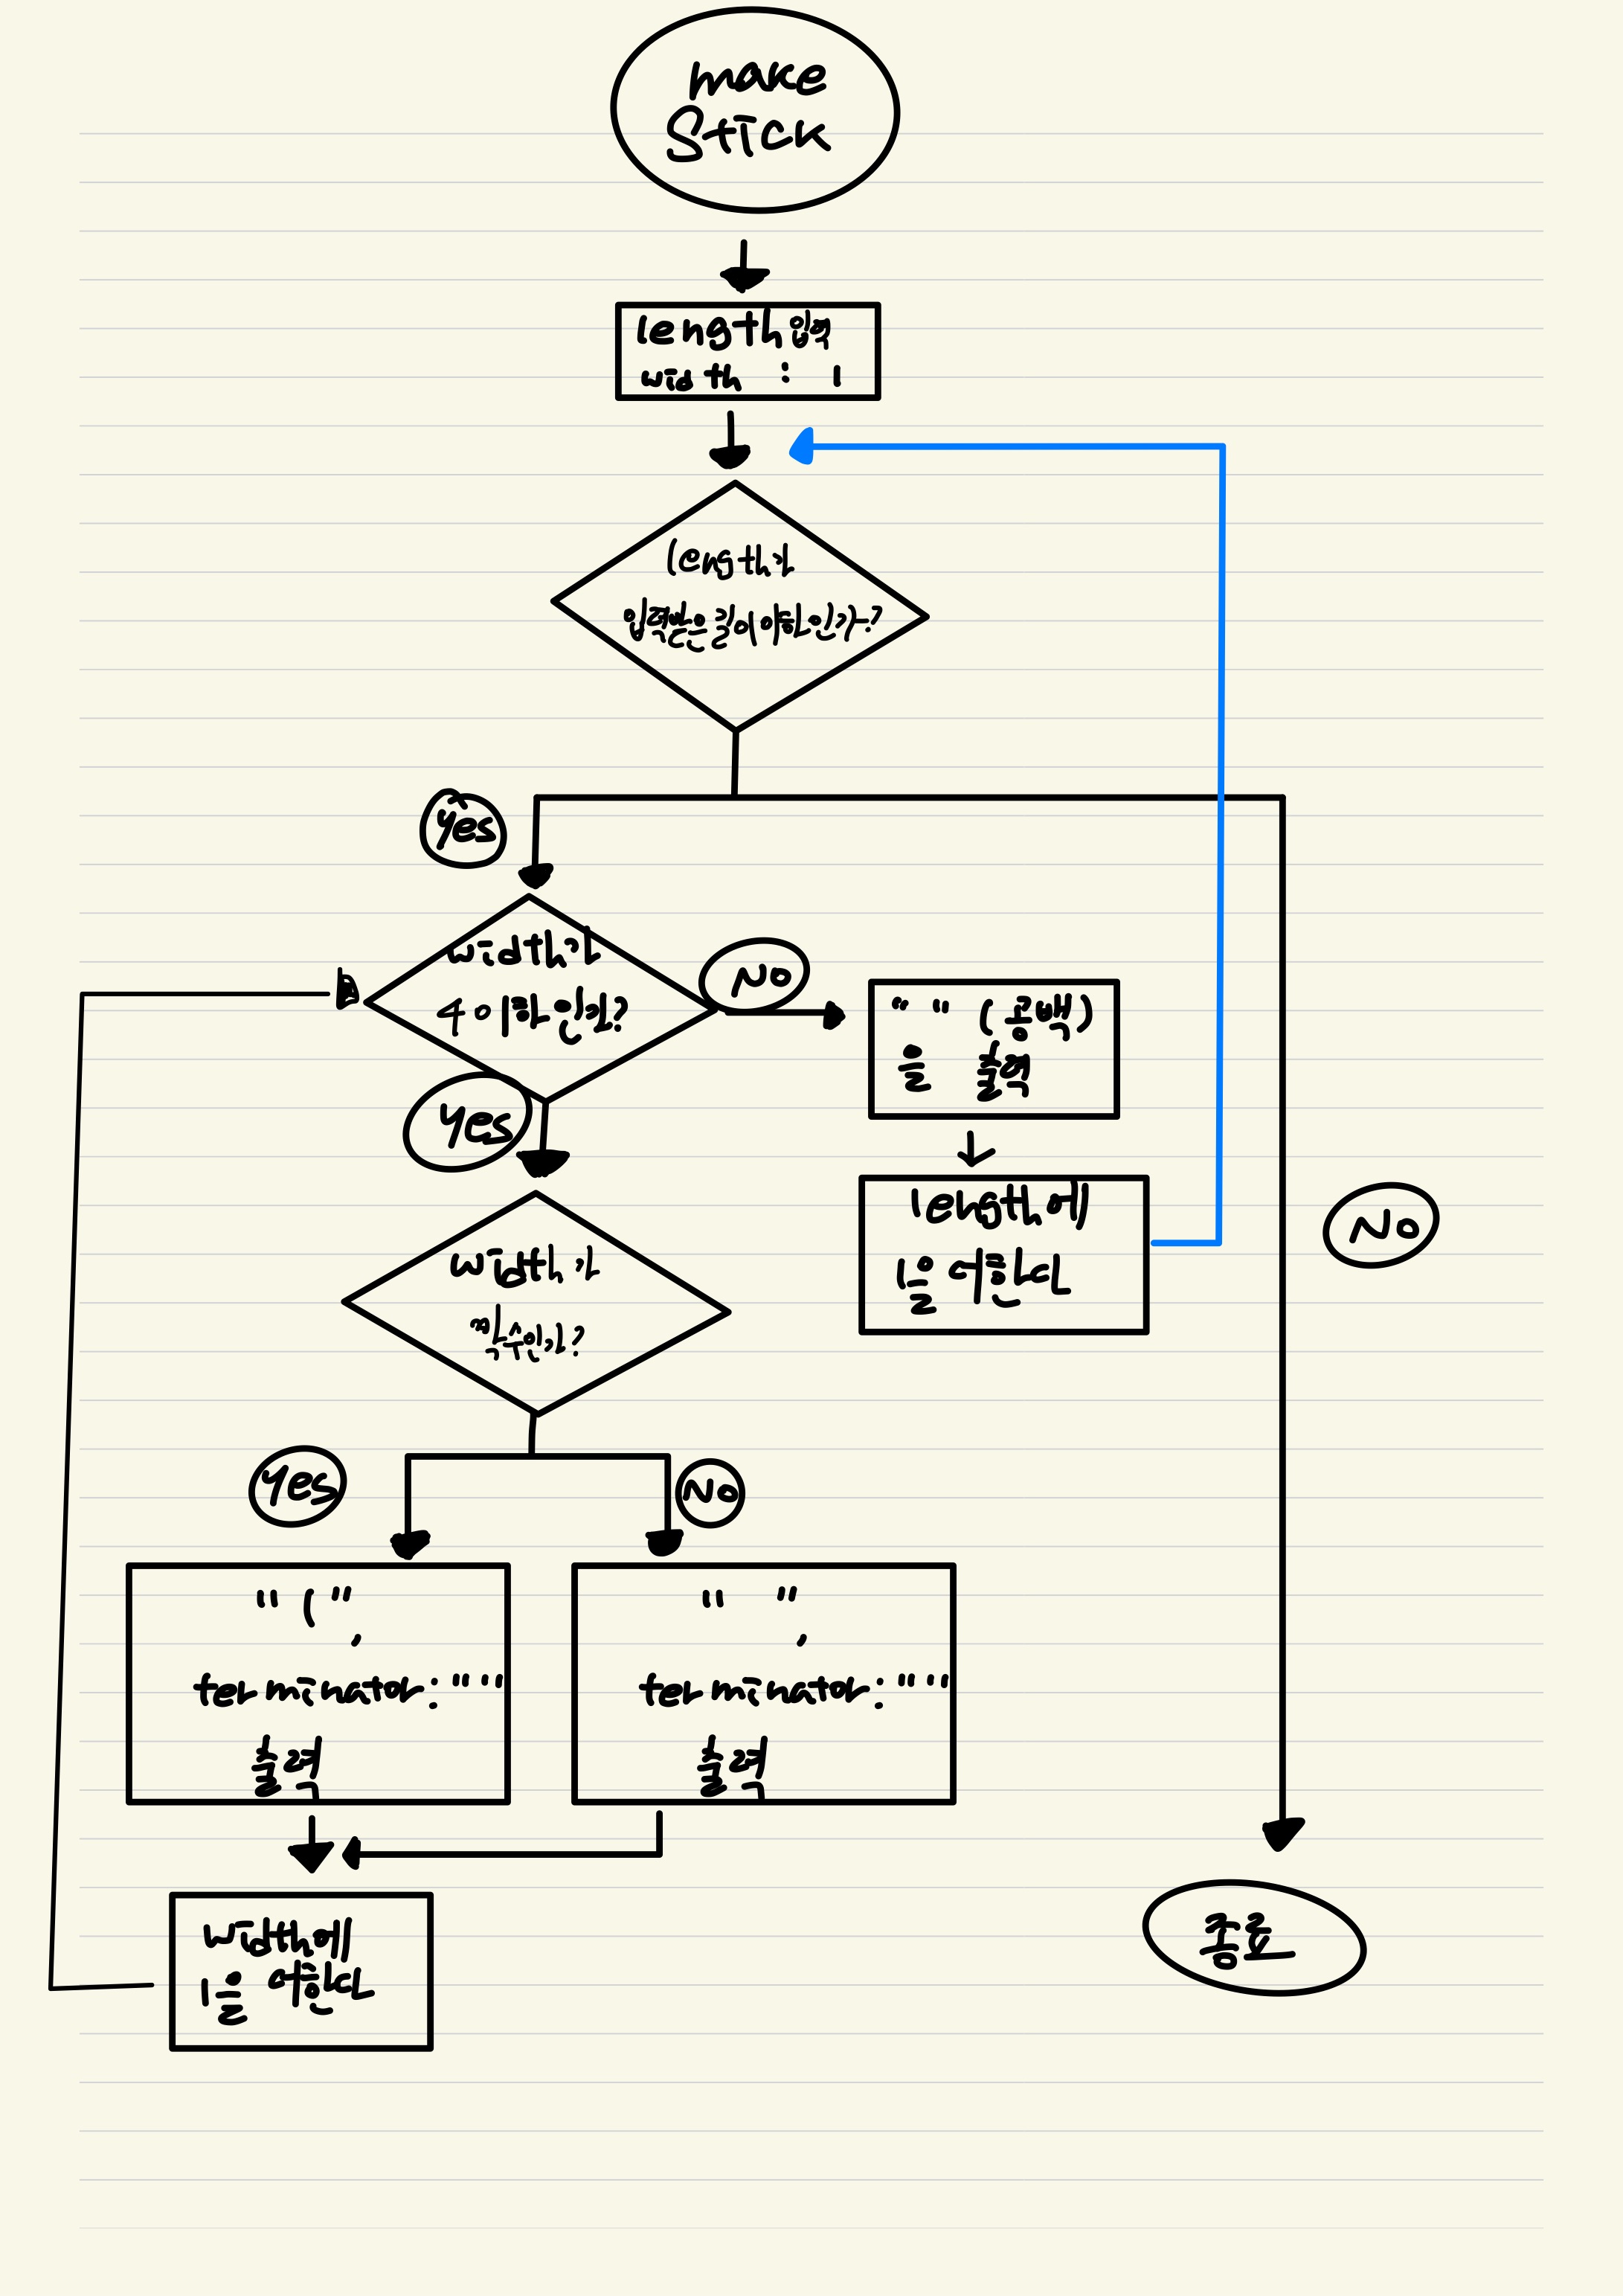 make
Stick
length입력
width : 1
length가
입력받은 길이 이하인가?
Yes
width가
4 이하인가?
No
" " (공백)
을 출력
Yes
length에
1을 더한다
No
width가
짝수인가?
Yes
No
" ( ",
terminator: " "
출력
"   ",
terminator: " "
출력
width에
1을 더한다
종료